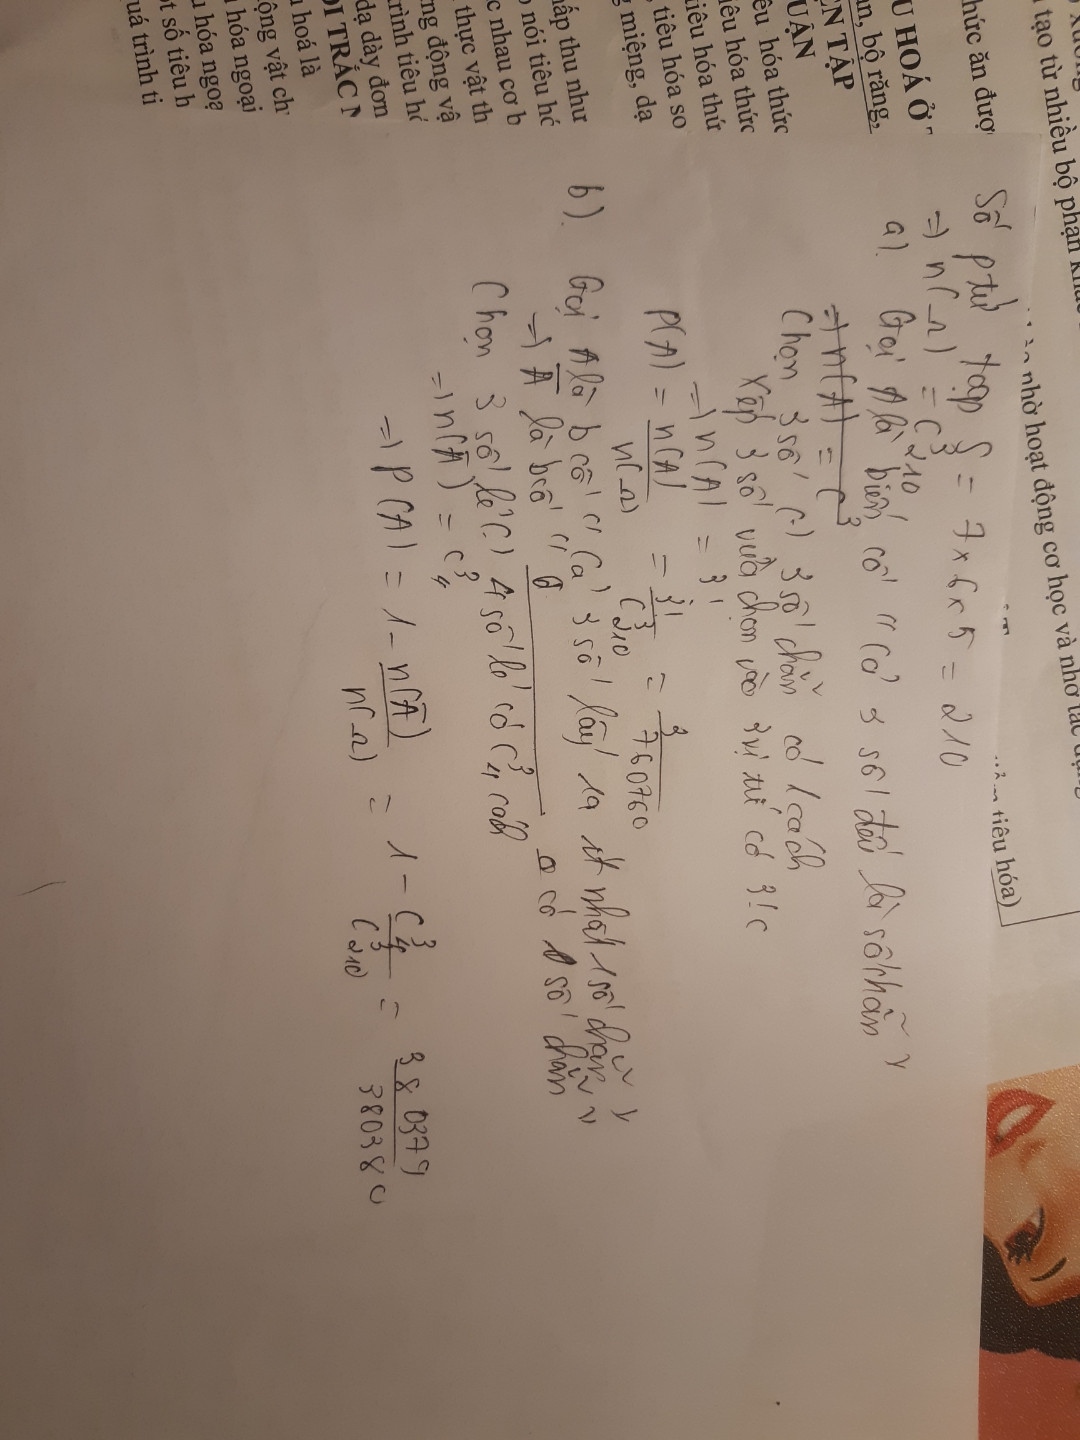 tạo từ nhiều bộ phận
nhờ hoạt động cơ học và nhờ tác
tiêu hóa)
hức ăn đượ
U HOÁ Ở
ăn, bộ răng,
ỆN TẬP
UẬN
êu hóa thức
iêu hóa thức
iêu hóa thứ
tiêu hóa so
miệng, dạ
ấp thu như
nói tiêu hó
c nhau cơ b
thực vật th
ng động vậ
rình tiêu hó
dạ dày đơn
ỎI TRẮC N
hoá là
ộng vật ch
hóa ngoại
hóa ngoạ
ột số tiêu h
uá trình ti
Số ptử tập S = 7 x 6 x 5 = 210
=) n(Ω) = C³₂₁₀
a). Gọi A là biến cố "Cả 3 số đều là số chẵn"
=) n(A) = C³
Chọn 3 số (-) 3 số chẵn có 1 cách
Xếp 3 số vừa chọn vào 3 vị trí có 3! c
=) n(A) = 3!
P(A) = n(A)/n(Ω) = 3!/C³₂₁₀ = 3/760760
b). Gọi A là b cố "Cả 3 số lấy ra ít nhất 1 số chẵn"
=) A̅ là bcố " có số chẵn"
Chọn 3 số lẻ (-) 4 số lẻ có C³₄ cách
=) n(A̅) = C³₄
=) P(A) = 1 - n(A̅)/n(Ω) = 1 - C³₄/C³₂₁₀ = 380379/380380